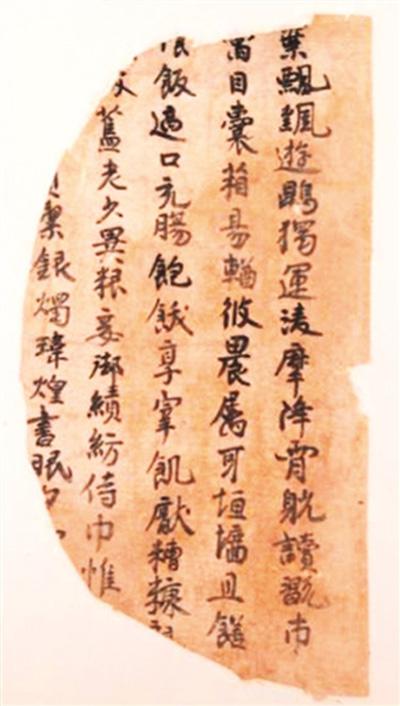 葉飄颻遊鵾獨運淩摩降霄躭讀翫市
寓目囊箱易輶攸畏属耳垣墻且饍
飯適口充腸飽飫享宰飢厭糟糠
故舊老少異粮妾御績紡侍巾帷
絜銀燭瑋煌晝眠夕